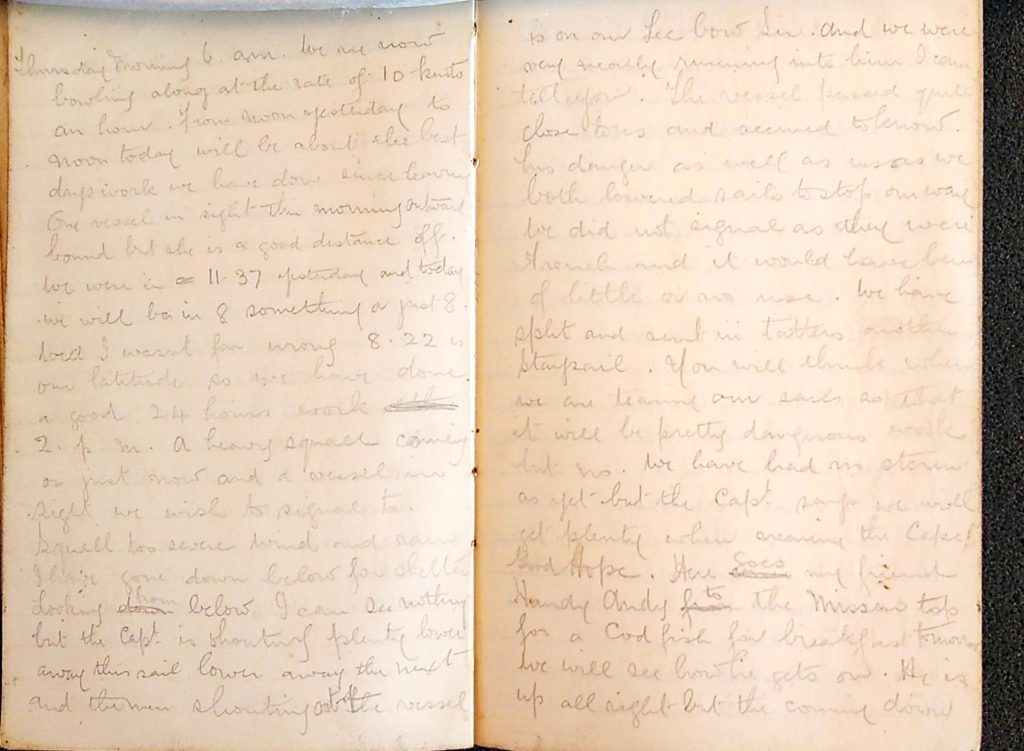 Thursday Morning 6. am. We are now
bowling along at the rate of 10 knots
an hour. From noon yesterday to
noon today will be about the best
days work we have done since leaving
One vessel in sight this morning outward
bound but she is a good distance off.
We were in 11.37 yesterday and today
we will be in 8 something or just 8.
I wasnt far wrong 8.22 is
our latitude so we have done
a good 24 hours work
2. p. m. A heavy squall coming
on just now and a vessel in
sight we wish to signal to.
Squall too severe wind and rain
I have gone down below for shelter
Looking from below I can see nothing
but the Capt. is shouting plenty lower
away this sail lower away the next
and the men shouting out the vessel
is on our Lee bow Sir. and we were
very nearly running into him I can
tell you. The vessel passed quite
close to us and seemed to know
his danger as well as us as we
both lowered sails to stop our way
We did not signal as they were
French and it would have been
of little or no use. We have
split and sent in tatters another
Staysail. You will think when
we are tearing our sails so that
it will be pretty dangerous work
but no. We have had no storm
as yet but the Capt. says we will
get plenty when nearing the Cape of
Good Hope. Here goes my friend
Handy Andy to the Missen top
for a Cod fish for breakfast tomorrow
we will see how he gets on. He is
up all right but the coming down